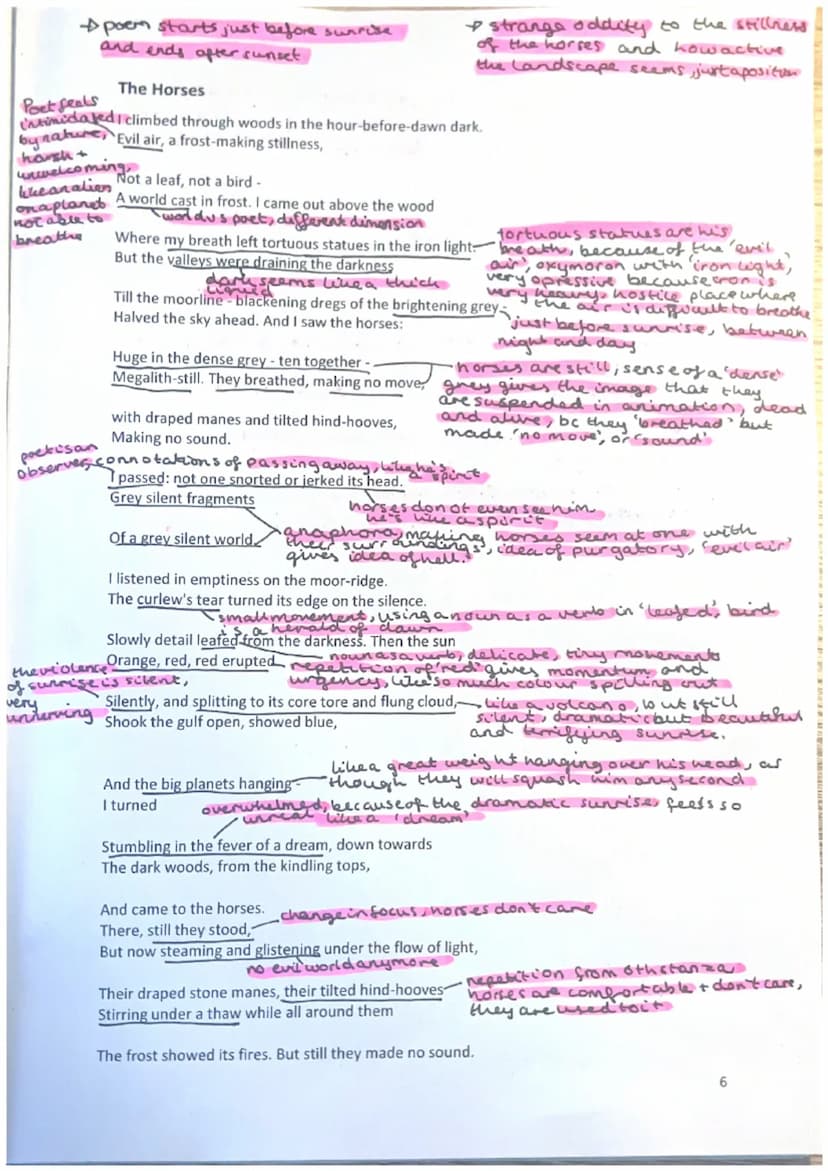 → poem starts just before sunrise
and ends after sunset
→ strange oddity to the stillness
of the horses and how active
the landscape seems, juxtaposition
The Horses
Poet feels
intimidated
by nature,
harsh +
unwelcoming,
like an alien
on a planet
not able to
breathe
I climbed through woods in the hour-before-dawn dark.
Evil air, a frost-making stillness,
Not a leaf, not a bird -
A world cast in frost. I came out above the wood
world vs poet, different dimension
Where my breath left tortuous statues in the iron light.
But the valleys were draining the darkness
dark seems like a thick
liquid
tortuous statues are his
breath, because of the 'evil
air', oxymoron with 'iron light',
very opressive because iron is
very heavy, hostile place where
the air is difficult to breathe
Till the moorline - blackening dregs of the brightening grey -
Halved the sky ahead. And I saw the horses:
just before sunrise, between
night and day
Huge in the dense grey - ten together -
Megalith-still. They breathed, making no move,
horses are still, sense of a 'dense'
grey gives the image that they
are suspended in animation, dead
and alive, bc they 'breathed' but
made 'no move', or 'sound'
with draped manes and tilted hind-hooves,
Making no sound.
poet is an
observer, connotations of passing away, like he's
a spirit
I passed: not one snorted or jerked its head.
Grey silent fragments
horses don ot even see him
he's like a spirit
Of a grey silent world.
anaphora, making horses seem at one with
their surroundings, idea of purgatory, 'evil air'
gives idea of hell.
I listened in emptiness on the moor-ridge.
The curlew's tear turned its edge on the silence.
small movement, using a noun as a verb in 'leafed', bird
is a herald of dawn
Slowly detail leafed from the darkness. Then the sun
noun as a verb, delicate, tiny movements
Orange, red, red erupted
repetition of 'red' gives momentum and
urgency, like so much colour spilling out
the violence
of sunrise is silent,
very
unnerving
Silently, and splitting to its core tore and flung cloud,
Shook the gulf open, showed blue,
like a volcano, but still
silent, dramatic but beautiful
and terrifying sunrise.
And the big planets hanging -
like a great weight hanging over his head, as
though they will squash him any second
I turned
overwhelmed, because of the dramatic sunrise, feels so
unreal like a 'dream'
Stumbling in the fever of a dream, down towards
The dark woods, from the kindling tops,
And came to the horses.
change in focus, horses don't care
There, still they stood,
But now steaming and glistening under the flow of light,
no evil world anymore
Their draped stone manes, their tilted hind-hooves
Stirring under a thaw while all around them
repetition from 6th stanza
horses are comfortable + don't care,
they are used to it
The frost showed its fires. But still they made no sound.
6